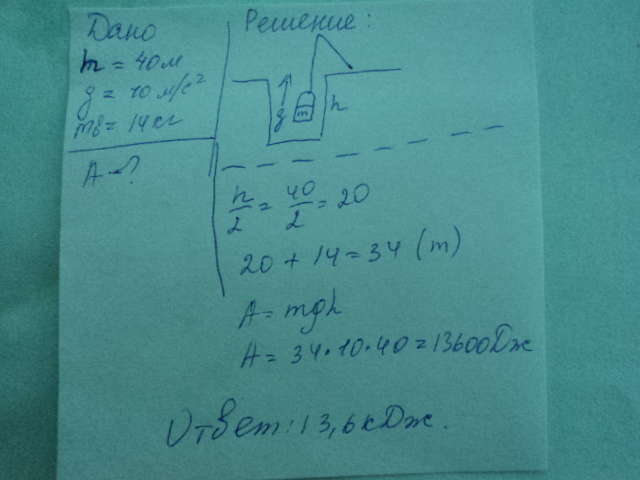 Дано
h = 40 м
g = 10 м/с²
mв = 14 кг
A - ?
Решение:
g
m
h
h/2 = 40/2 = 20
20 + 14 = 34 (m)
A = mgh
A = 34 • 10 • 40 = 13600 Дж
Ответ: 13,6 кДж.